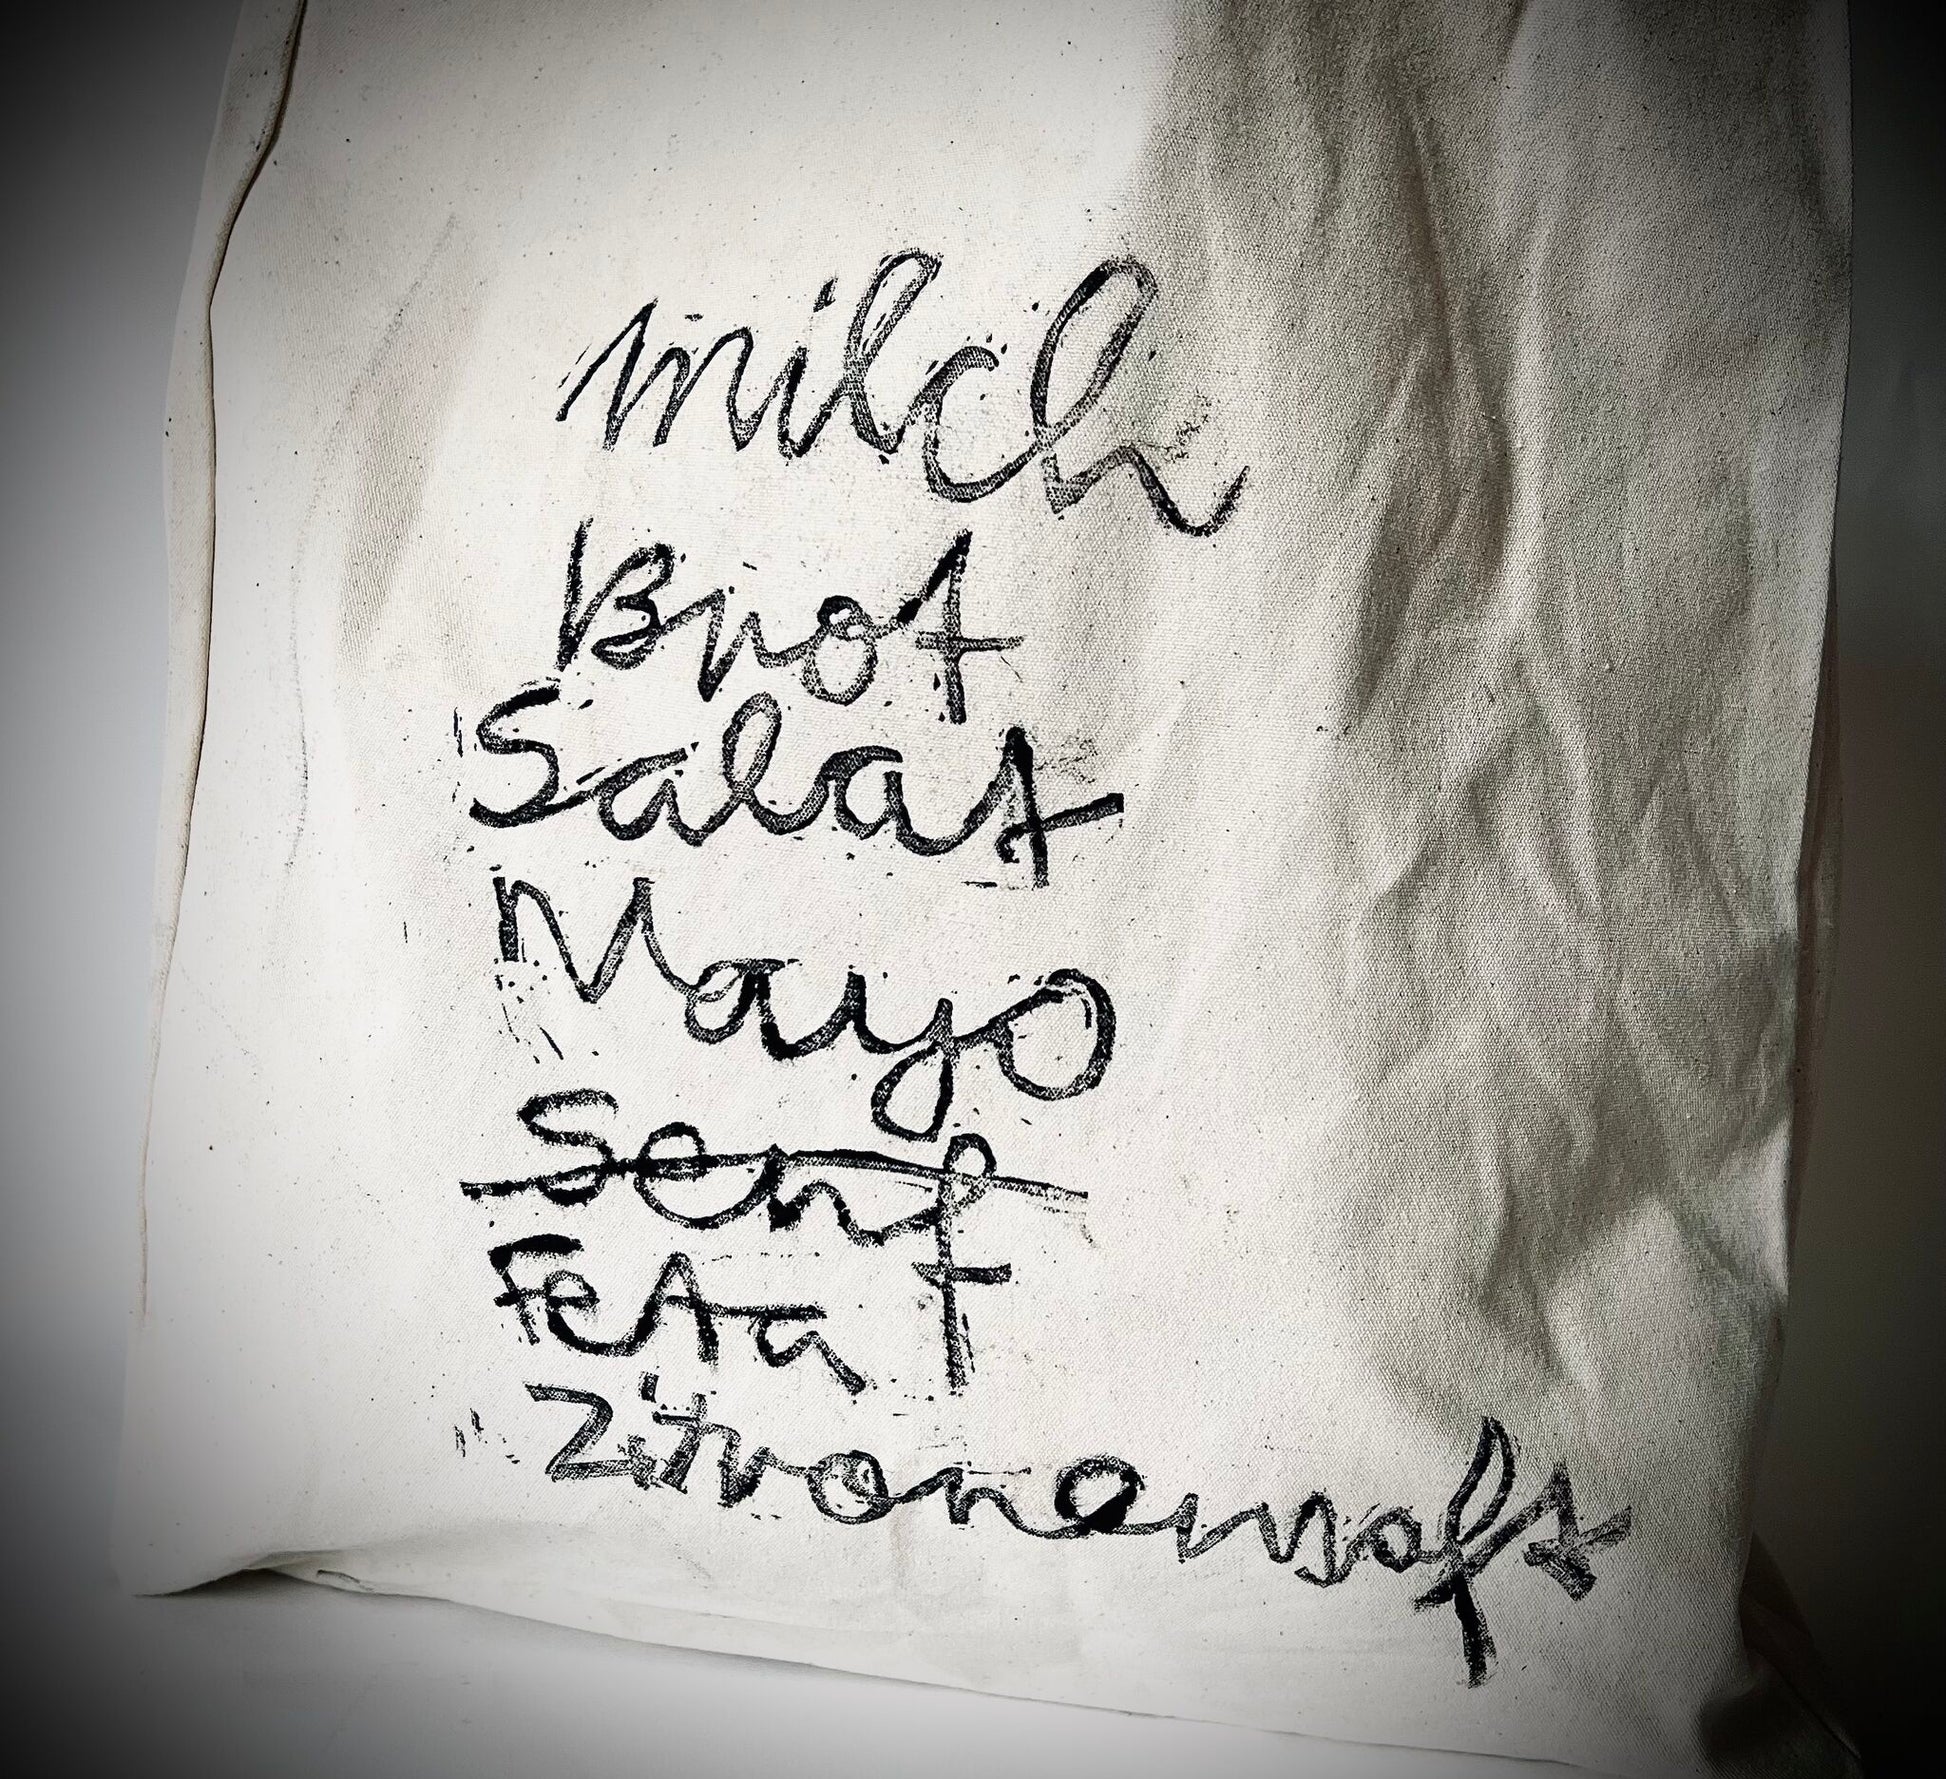 Milch
Brot
Salat
Mayo
Senf
Feta
Zitronensaft